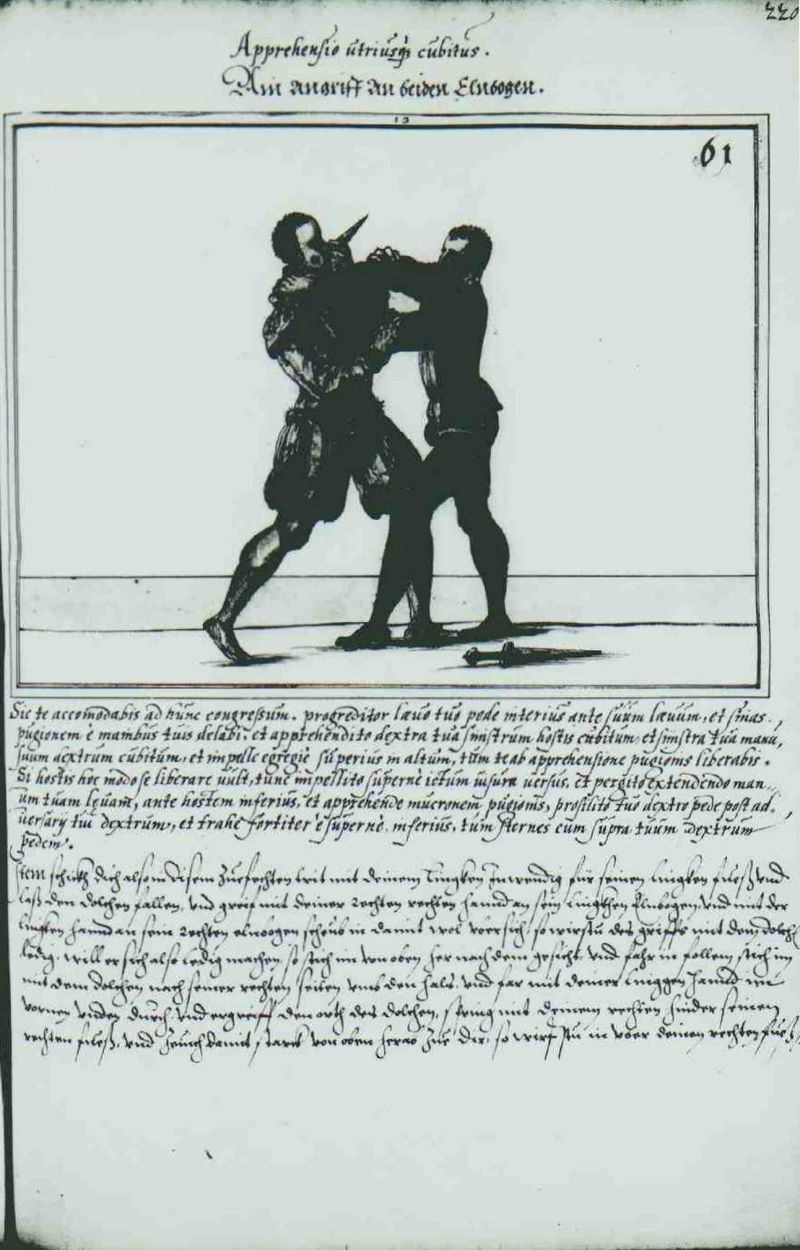 220
Apprehensio utriusq̃ cubitus.
Ain angriff an beiden Elnbogen.
13
61
Sic te accom̃odabis ad hunc congressum. progreditor laevo tuo pede interius ante suum laevum, et sinas
pugionem è manibus tuis delabi, et apprehendito dextra tua sinistrum hostis cubitum, et sinistra tua manu,
suum dextrum cubitum, et impelle egregiè superius in altum, tum te ab apprehensione pugionis liberabis.
Si hostis hoc modo se liberare vult, tunc impellito supernè ictum visum versus, et pergito extendendo man,,
um tuam levam, ante hostem inferius, et apprehende mucronem pugionis, prosilito tuo dextro pede post ad,,
versarij tui dextrum, et trahe fortiter è supernè inferius, tum sternes eum supra tuum dextrum
pedem.
Item schickh dich also in disem Zuefechten trit mit deinem Lingken Inwendig für seinen Lingken fuesß und
lasß den dolchen fallen, und greif mit deiner rechten rechten hannd an sein Lingkhen Elnbogen, und mit der
lingken hannd an sein rechten elnbogen scheub in damit wol ubersich, so wirstu des griffs mit dem dolch
ledig, will er sich also ledig machen, so stich im von oben her nach dem gesicht, und fahr in follem stich im
mit dem dolchen nach seiner rechten seiten umb den hals, und far mit deiner linggen hannd im
vornen unden durch, und ergreiff den orth des dolchen, spring mit deinem rechten hinder seinen
rechten fuesß, und zeuch damit starck von oben herab zue dir, so wirfstu in uber deinen rechten fuesß